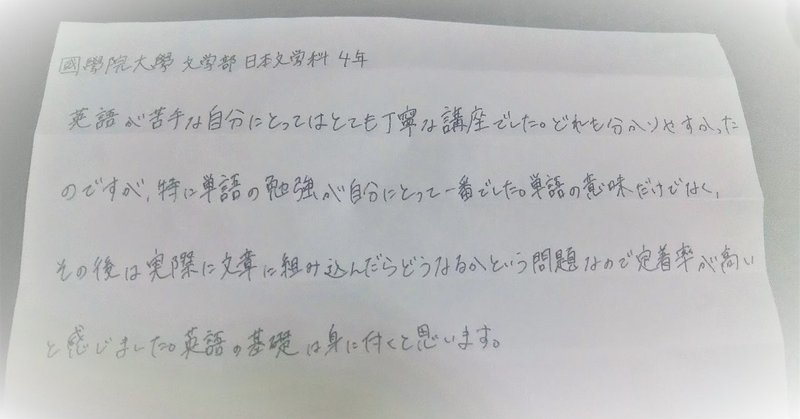 國學院大學 文学部 日本文学科 4年
英語が苦手な自分にとってはとても丁寧な講座でした。どれも分かりやすかった
のですが、特に単語の勉強が自分にとって一番でした。単語の意味だけでなく、
その後は実際に文章に組み込んだらどうなるかという問題なので定着率が高い
と感じました。英語の基礎は身に付くと思います。